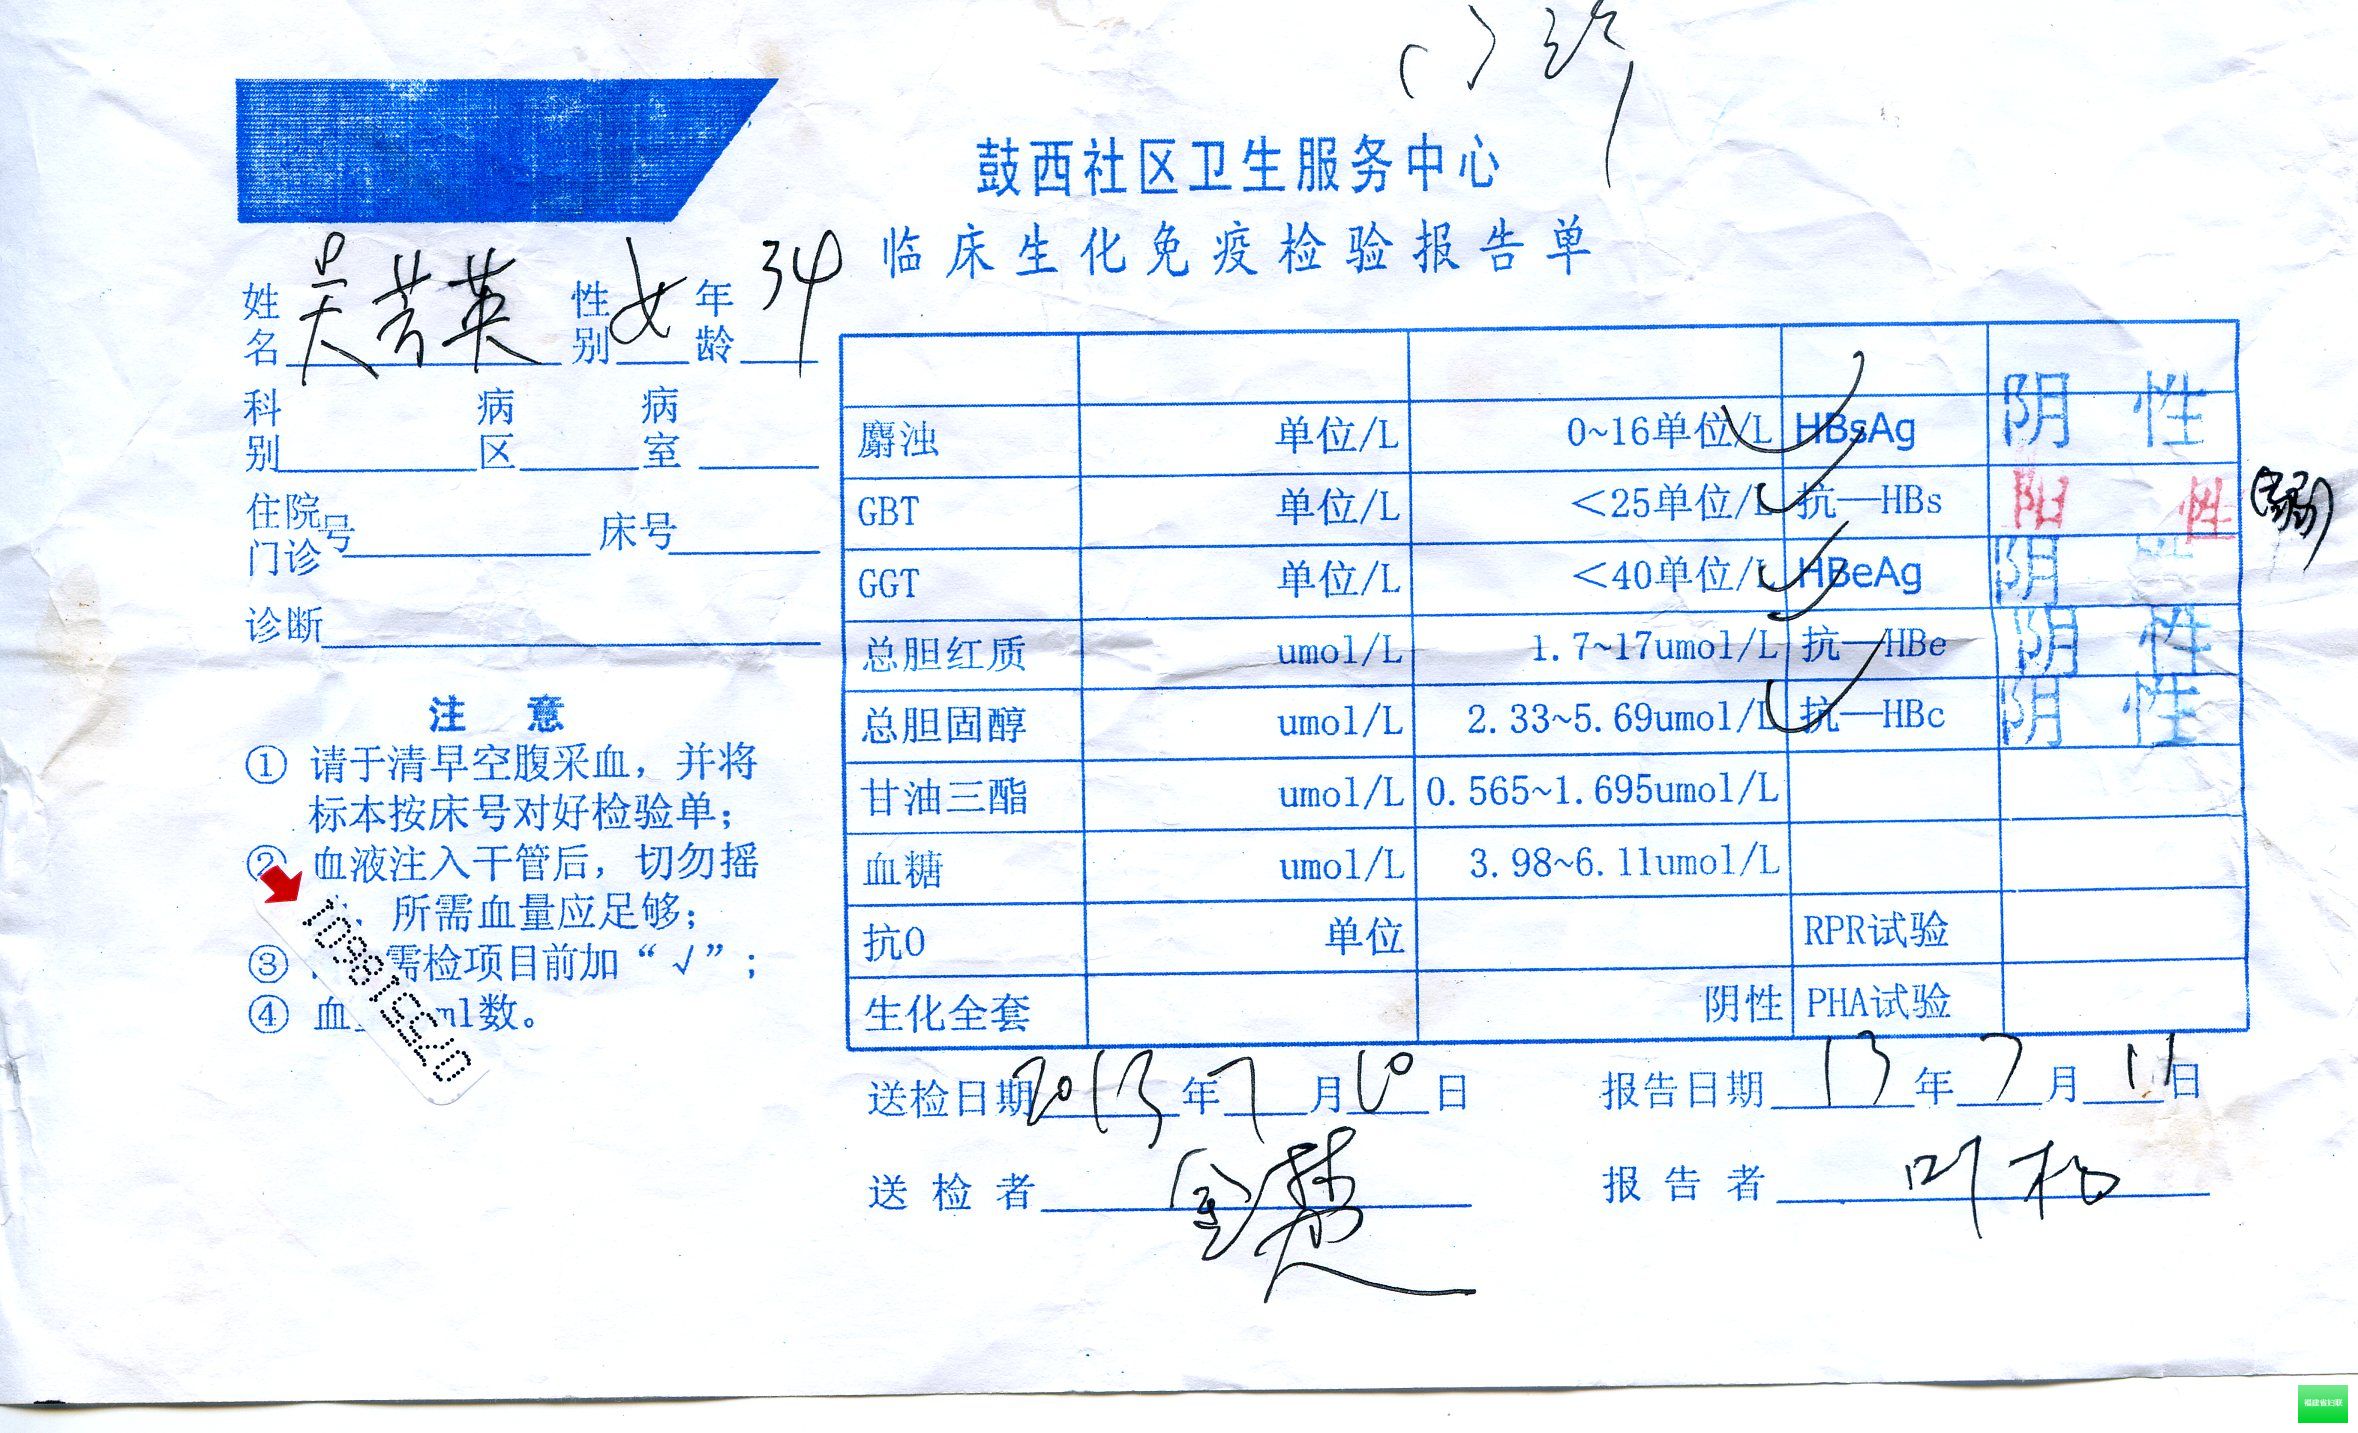 门诊
鼓西社区卫生服务中心
临床生化免疫检验报告单
姓名 吴芳英 性别 女 年龄 34
科别 病区 病室
住院门诊号 床号
诊断
注 意
① 请于清早空腹采血，并将
标本按床号对好检验单；
② 血液注入干管后，切勿摇
、所需血量应足够；
③ 需检项目前加“√”；
④ 血 ml数。
麝浊 单位/L 0~16单位/L √ HBsAg 阴 性
GBT 单位/L <25单位/L √ 抗—HBs 阳 性 (弱)
GGT 单位/L <40单位/L √ HBeAg 阴 性
总胆红质 umol/L 1.7~17umol/L √ 抗—HBe 阴 性
总胆固醇 umol/L 2.33~5.69umol/L √ 抗—HBc 阴 性
甘油三酯 umol/L 0.565~1.695umol/L
血糖 umol/L 3.98~6.11umol/L
抗O 单位 RPR试验
生化全套 阴性 PHA试验
送检日期 2013 年 7 月 10 日 报告日期 13 年 7 月 11 日
送检者 报告者 叶
福建省妇联